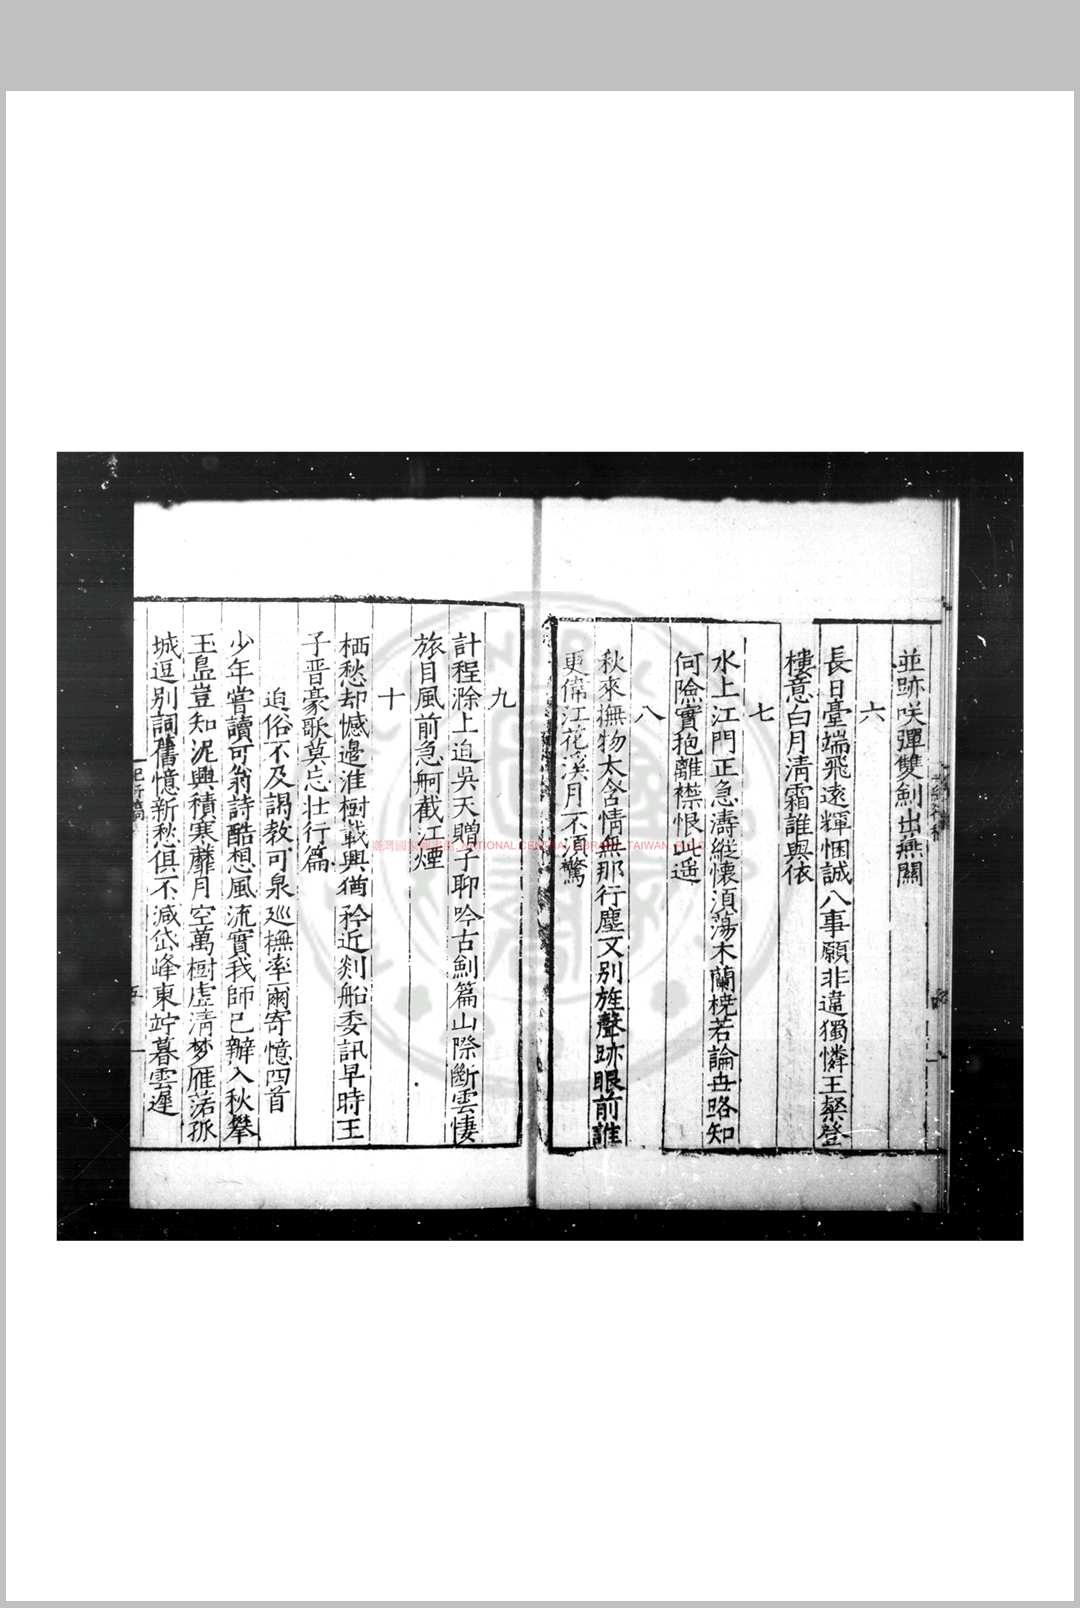 並跡咲彈雙劍出燕關
六
長日臺端飛遠輝悃誠八事願非違獨憐王粲登
樓意白月清霜誰與依
七
水上江門正急濤縱懷須蕩木蘭橈若論世路知
何險實抱離襟恨此遥
八
秋來撫物太含情無那行塵又別旌聲跡眼前誰
更偹江花漢月不須驚
九
計程滁上迫吳天贈子聊吟古劍篇山際斷雲悽
旅目風前急舸截江煙
十
栖愁却憾邊淮樹載興猶矜近剡船委訊早時王
子晋豪歌莫忘壮行篇
迫俗不及謁教可泉廵撫率爾寄憶四首
少年嘗讀可翁詩酷想風流實我師已辦入秋攀
玉島豈知泥興積寒蘼月空萬樹虚清梦雁落孤
城逗別詞舊憶新愁俱不減岱峰東竚暮雲遲
五